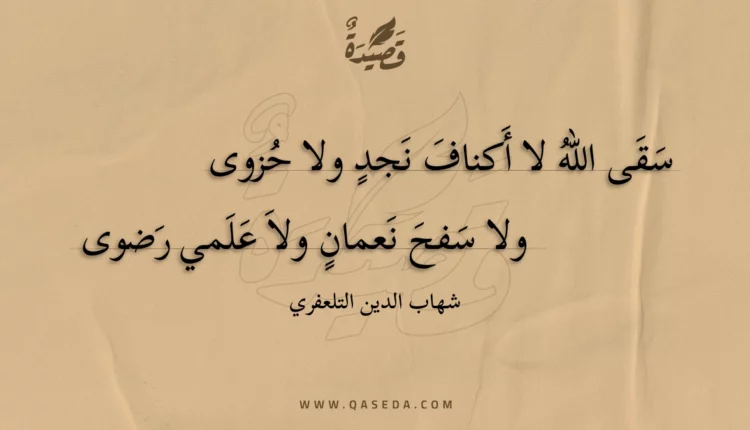 قَصِيدَةٌ
سَقَى اللهُ لا أَكنافَ نَجدٍ ولا حُزوى
ولا سَفحَ نَعمانٍ ولاَ عَلَمي رَضوى
شهاب الدين التلعفري
WWW.QASEDA.COM